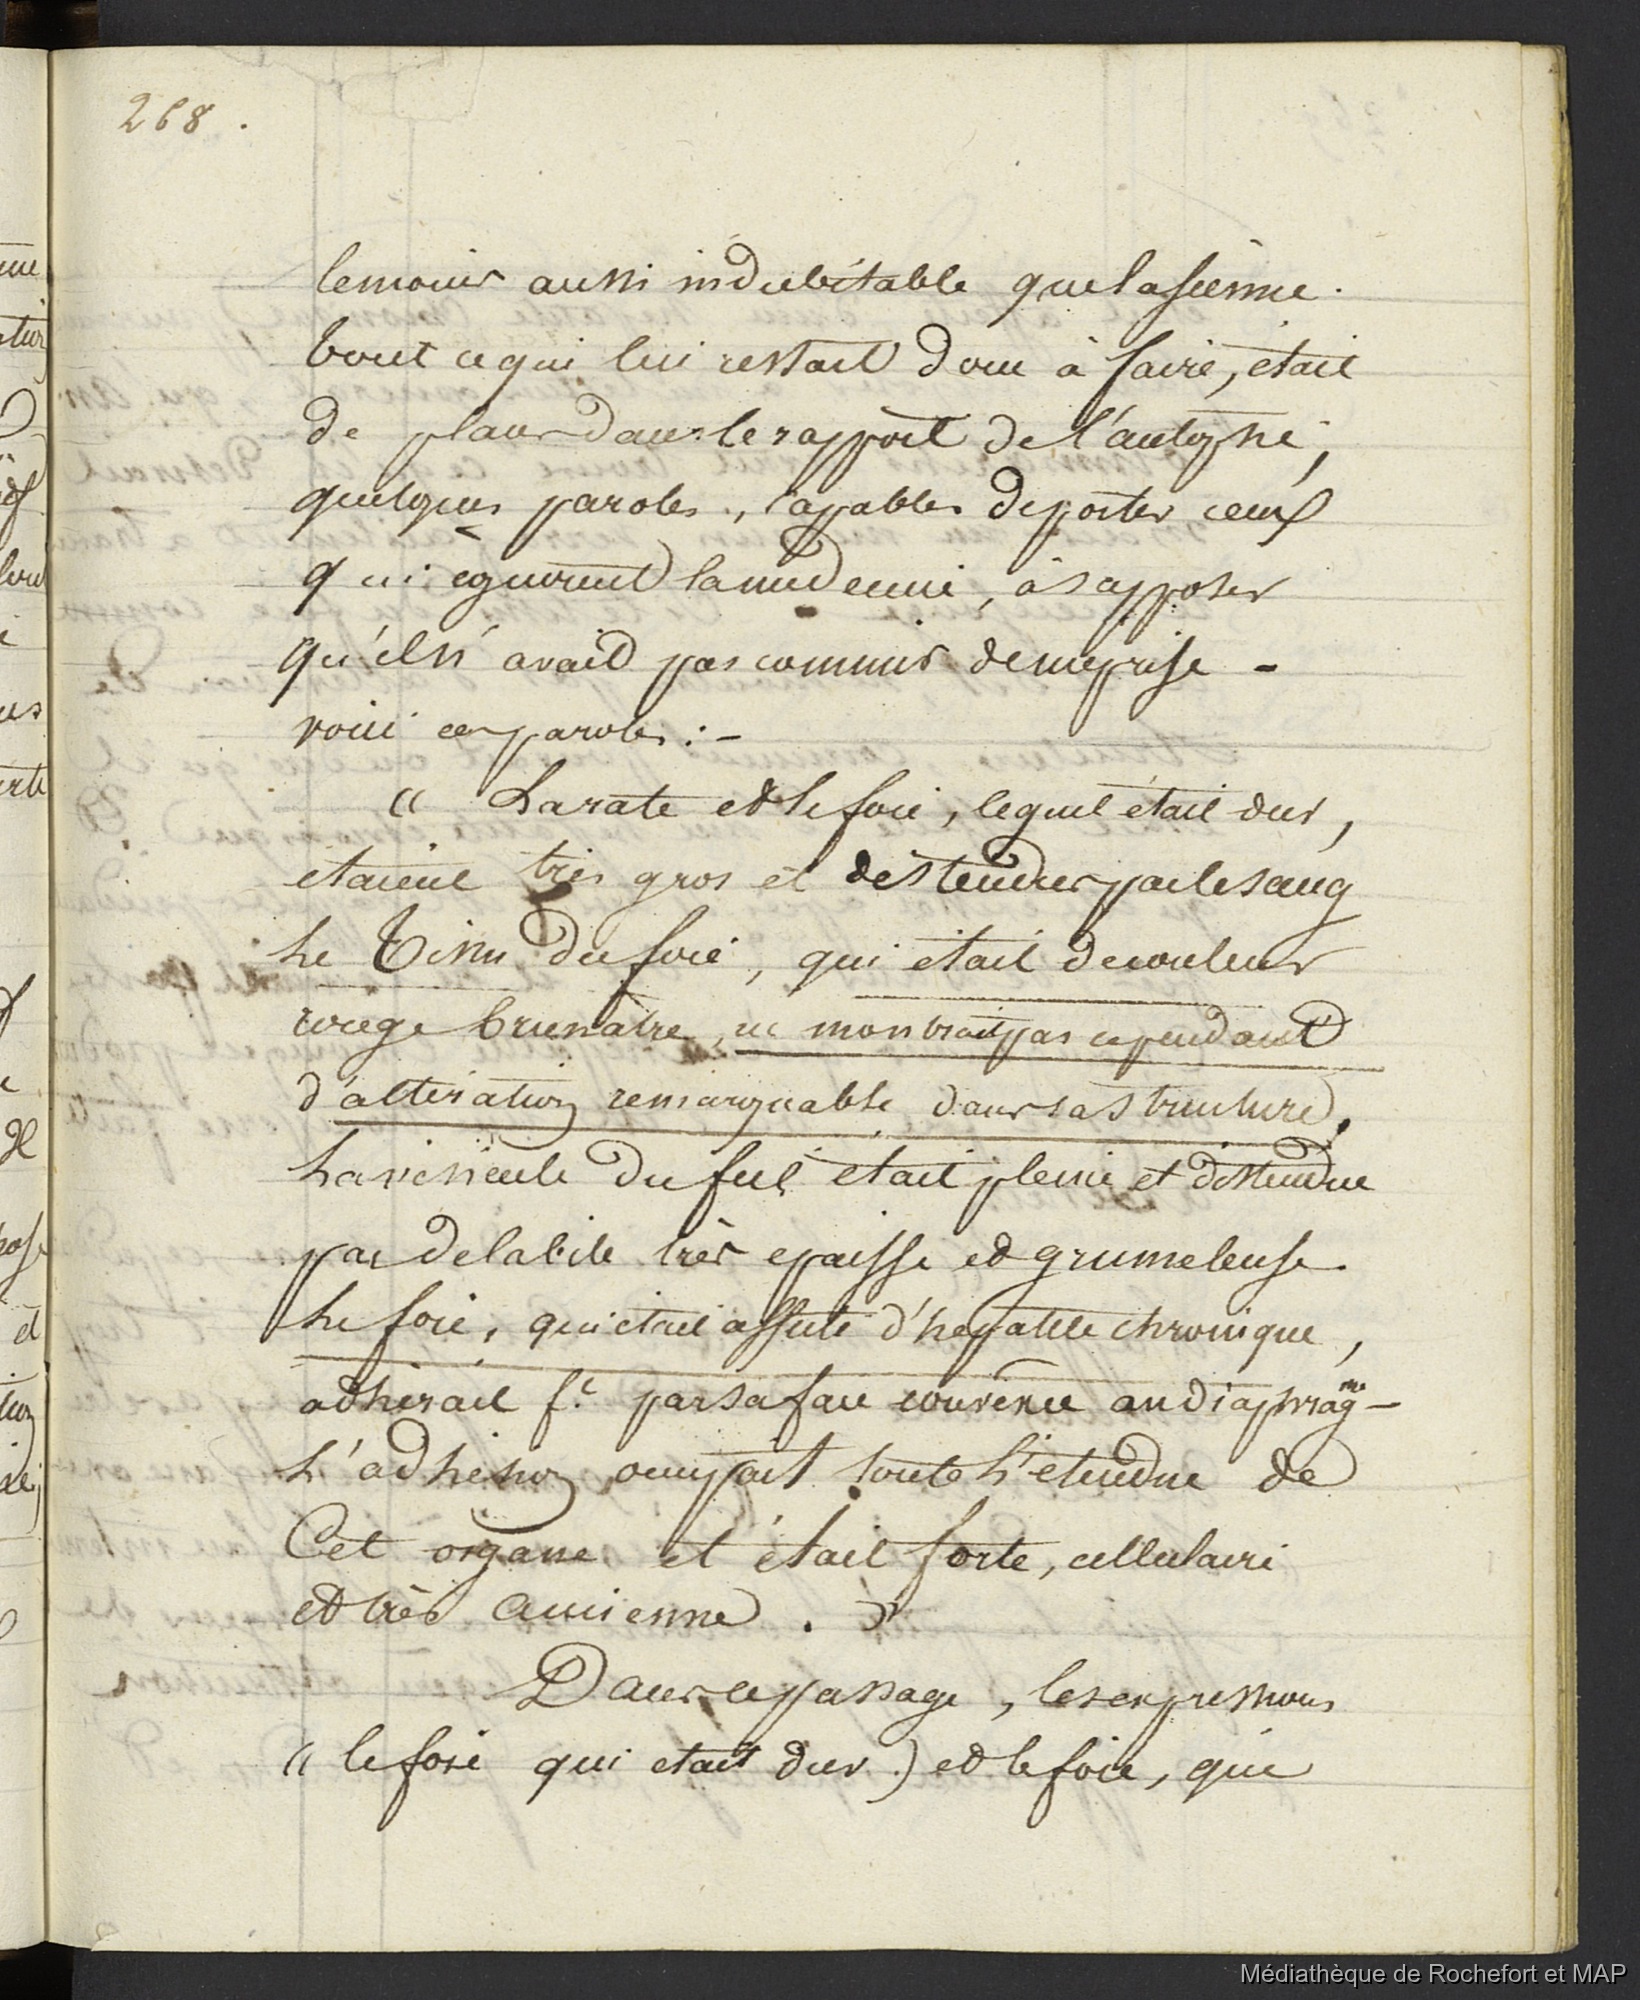 268.
lemoins aussi indubitable que la sienne.
tout ce qui lui restait donc à faire, était
de placer dans le rapport de l'autopsie,
quelques paroles, capables de porter ceux
qui ignorent la medecine, à supposer
qu'il n'avait pas commis de meprise -
voici ces paroles : -
« La rate et le foie, lequel était dur,
etaient très gros et distendus par le sang
Le tissu du foie, qui était de couleur
rouge brunatre, ne montrait pas cependant
d'altération remarquable dans sa structure.
La vesicule du fiel était pleine et distendue
par de la bile très epaisse et grumeleuse.
Le foie, qui était affecté d'hepatite chronique,
adherait ft. par sa face convexe au diaphragme -
L'adhesion occupait toute l'etendue de
Cet organe et était forte, cellulaire
et très ancienne. »
Dans ce passage, les expressions
« le foie qui etait dur ) et le foie, qui
Médiathèque de Rochefort et MAP